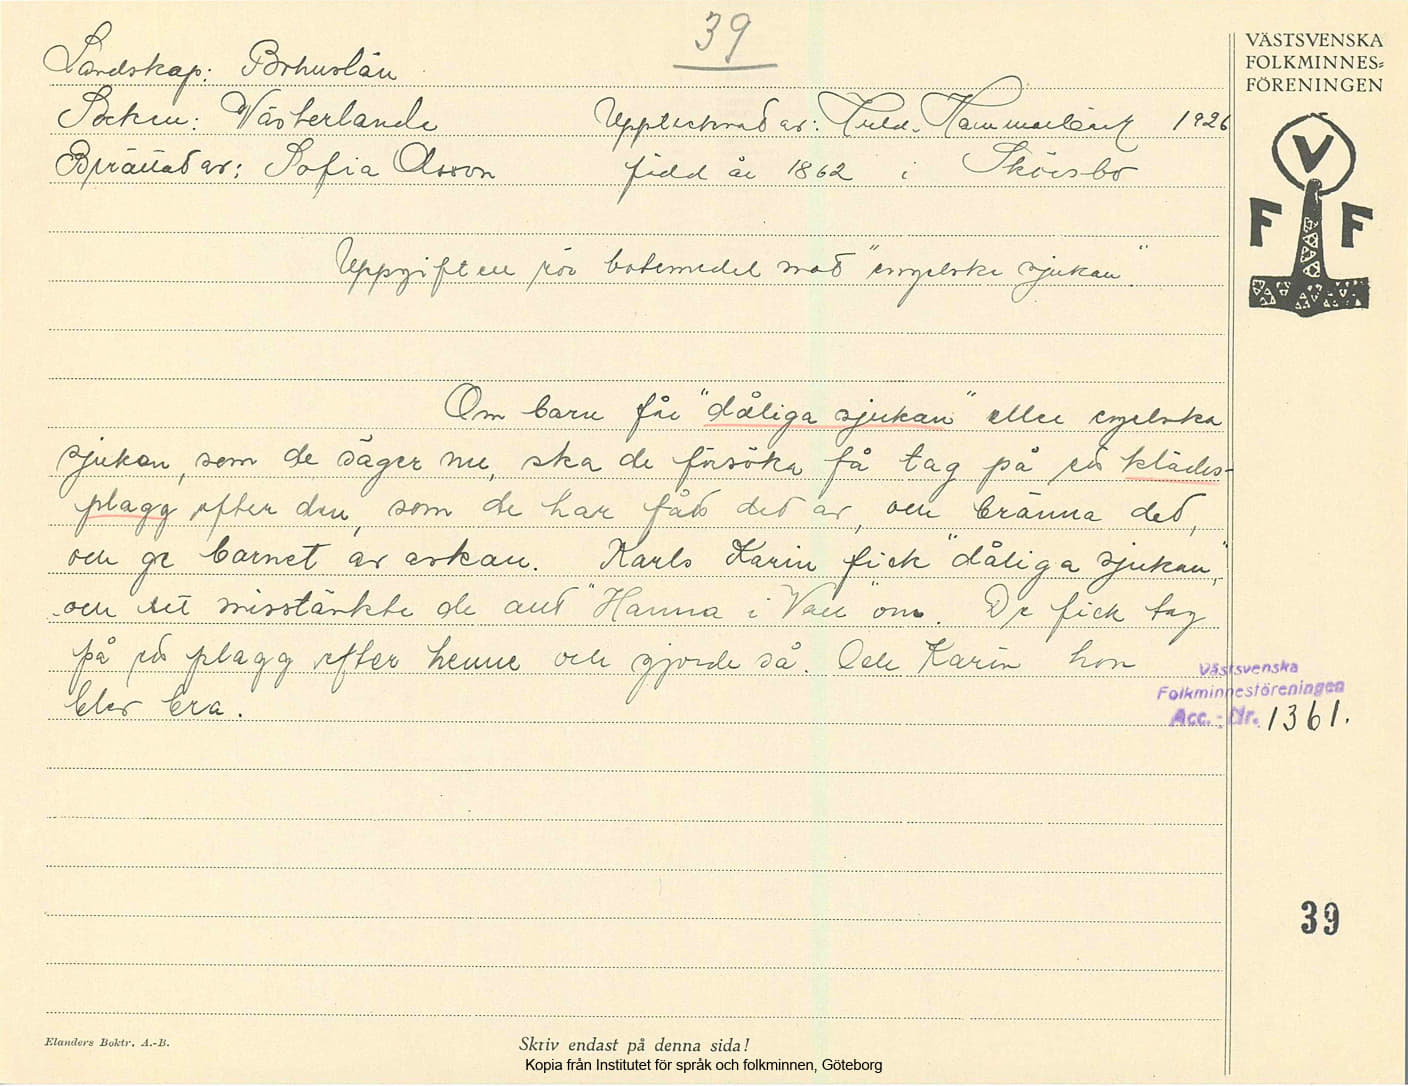 39
VÄSTSVENSKA
FOLKMINNES-
FÖRENINGEN
V
F F
Landskap: Bohuslän
Socken: Västerlanda Upptecknad av: Huld. Hammarbäck 1926
Berättad av: Sofia Olsson född år 1862 i Skörsbo
Uppgiften rör botemedel mot "engelska sjukan".
Om barn får "dåliga sjukan" eller engelska
sjukan, som de säger nu, ska de försöka få tag på ett klädes-
plagg efter den, som de har fått det av, och bränna det,
och ge barnet av askan. Karls Karin fick "dåliga sjukan",
och det misstänkte de ant "Hanna i Vall" om. De fick tag
på ett plagg efter henne och gjorde så. Och Karin hon
blev bra.
Västsvenska
Folkminnesföreningen
Acc. - Nr. 1361.
39
Elanders Boktr. A.-B.
Skriv endast på denna sida!
Kopia från Institutet för språk och folkminnen, Göteborg